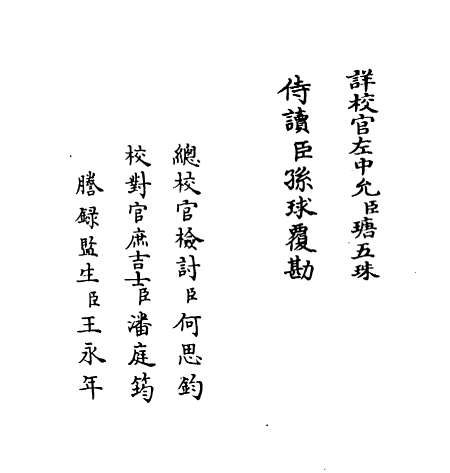 詳校官左中允臣瑭五珠
侍讀臣孫球覆勘
總校官檢討臣何思鈞
校對官庶吉士臣潘庭筠
謄録監生臣王永年